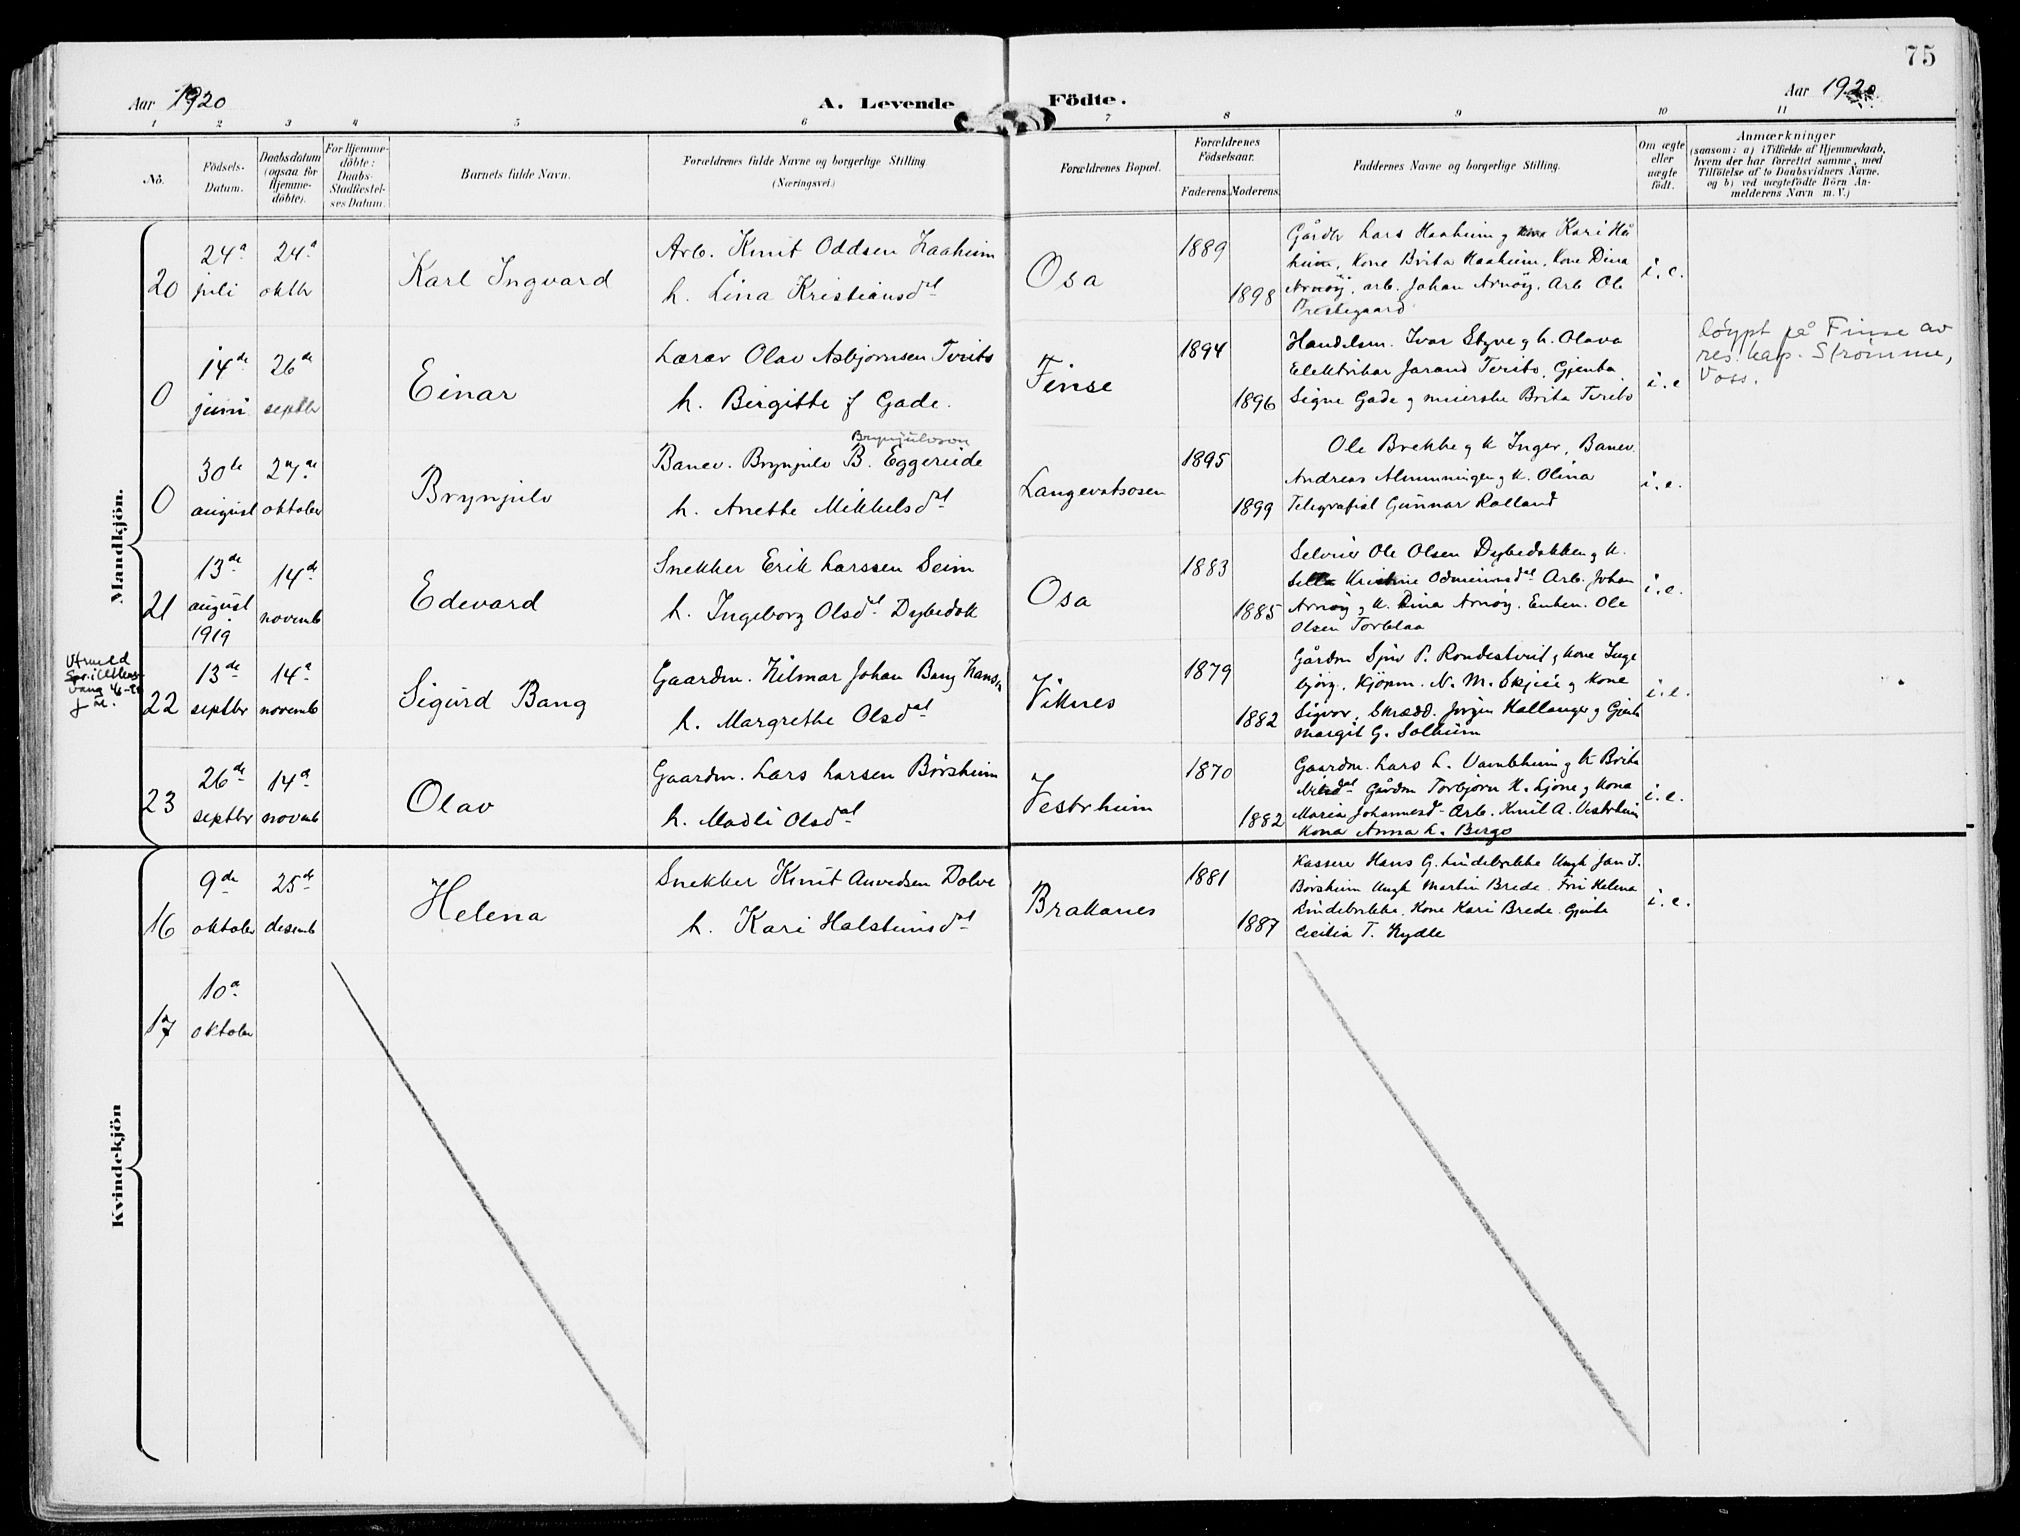 75
Aar 1920
A. Levende Födte.
Aar 1920
1 2 3 4 5 6 7 8 9 10 11
No.
Födsels-
Datum.
Daabsdatum
(ogsaa for
Hjemme-
döbte).
For Hjemme-
döbte:
Daabs-
Stadfæstel-
ses Datum.
Barnets fulde Navn.
Forældrenes fulde Navne og borgerlige Stilling
(Næringsvei.)
Forældrenes Bopæl.
Forældrenes
Födselsaar.
Faderens. Moderens.
Faddernes Navne og borgerlige Stilling.
Om ægte
eller
uægte
födt.
Anmærkninger
(saasom: a) i Tilfælde af Hjemmedaab,
hvem der har forrettet samme, med
Tilföielse af to Daabsvidners Navne,
og b) ved uægtefödte Börn An-
melderens Navn m. V.)
Mandkjön.
20
24a
juli
24a
oktbr
Karl Ingvard
Arb. Knut Oddsen Haaheim
h. Lina Kristiansdat
Osa
1889
1898
Gårdbr Lars Haaheim g Kari Hå
heim, Kone Brita Haaheim, Kone Dina
Arnöy, arb. Johan Arnöy. Arb Ole
Prestegaard
i.e.
0
14de
juni
26de
septbr
Einar
Lærer Olav Asbjørnsen Tveito
h. Birgitte f Gade.
Finse
1894
1896
Handelsm. Ivar Styve g h. Olava
Elektriker Jarand Tveito, Gjenta
Signe Gade g meierske Brita Tveito
i.e
løypt på Finse av
res. kap. Strømme,
Voss.
0
30te
august
27de
oktober
Brynjulv
Brynjulvson
Banev. Brynjulv B. Eggereide
h. Anethe Mikkelsdat
Langevatsosen
1895
1899
Ole Brekke g k Inger, Banev.
Andreas Almenningen g k. Olina
Telegrafist Gunnar Rolland
i.e.
21
13de
august
1919
14de
novemb
Edevard
Snekker Erik Larssen Seim
h. Ingeborg Olsdt Dybedok
Osa
1883
1885
Selveier Ole Olsen Dybedokken g k.
Kristine Odmunnsdat Arb. Johan
Arnöy g k. Dina Arnöy. Enken. Ole
Olsen Torblaa
i.e.
Utmeld
22
13de
septbr
14a
novemb
Sigurd Bang
Gaardm. Hilmar Johan Bang Hansn
h. Margrethe Olsdat
Viknes
1879
1882
Gårdm P. Rondestveit g kone Inge
björg. Kjöpm. N. M. Skjeie g kone
Sigvor, Skrædd. Jorgen Hallanger g Gjenta
Margit G. Solheim
i.e.
23
26de
septbr
14a
novemb
Olav
Gaardm. Lars Larsen Börsheim
h. Madli Olsdat
Vestrheim
1870
1882
Gaardm. Lars L. Vambheim g k Brita
Nilsdat Gårdm Torbjörn H. Ljone g kona
Maria Johannesdt Arb. Knut A. Vestrheim
Kona Anna L. Bergo
i.e.
Kvindekjön
16
9de
oktober
25de
desemb
Helena
Snekker Knut Anvedsen Dolve
h. Kari Halsteinsdat
Brakanes
1881
1887
Kasserer Hans G. Lindebrekke Ungk Jan J.
Börsheim Ungk Martin Brede. Fru Helena
Lindebrekke, Kone Kari Brede. Gjenta
Cecilia T. Hydle
i.e.
17
10a
oktober